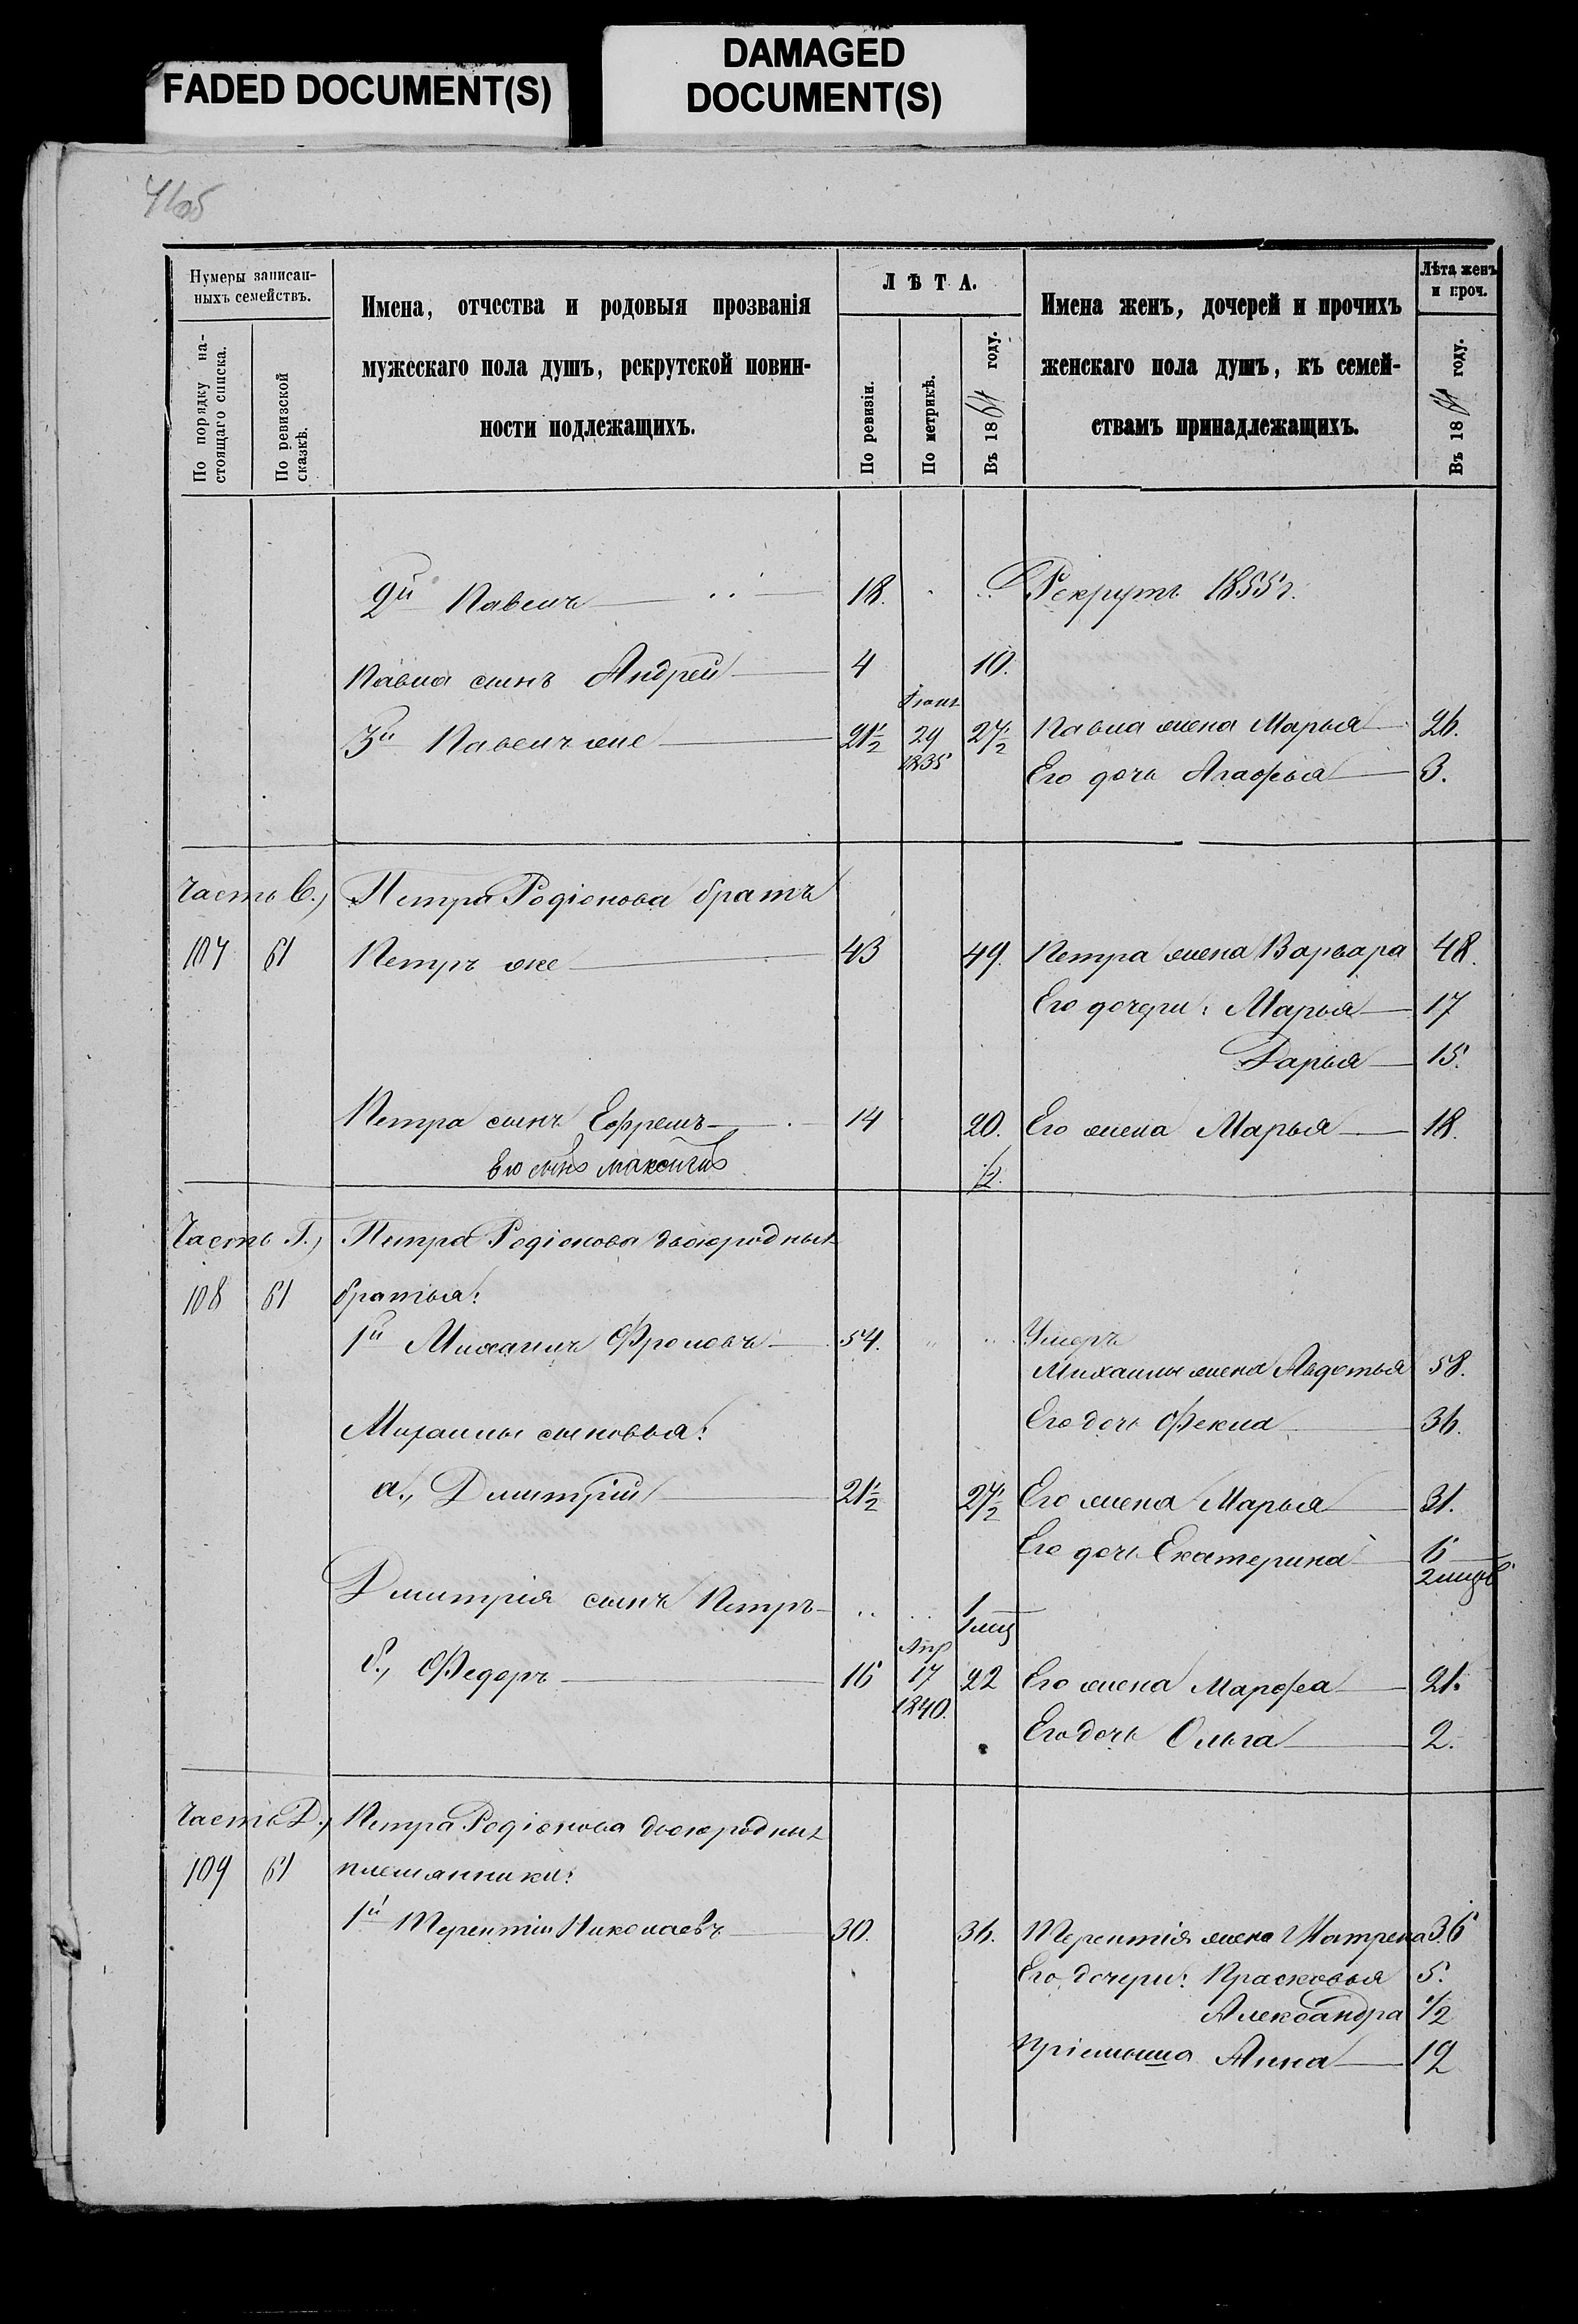 FADED DOCUMENT(S)
DAMAGED
DOCUMENT(S)
Нумеры записан-
ныхъ семействъ.
По порядку на-
стоящаго списка.
По ревизской
сказкѣ.
Имена, отчества и родовыя прозванія
мужескаго пола душъ, рекрутской повин-
ности подлежащихъ.
ЛѢТА.
По ревизіи.
По метрикѣ.
Въ 1861 году.
Имена женъ, дочерей и прочихъ
женскаго пола душъ, къ семей-
ствамъ принадлежащихъ.
Лѣта женъ
и проч.
Въ 1861 году.
2й Павелъ 18. Рекрутъ 1855 г.
Павла сынъ Андрей 4 10.
3й Павелъ же 21½ 29 1835 27½ Павла жена Марья 26.
Его дочь Агафья 3.
Часть В., Петра Родіонова братъ
107 61 Петръ же 43 49. Петра жена Варвара 48.
Его дочери: Марья 17
Дарья 15.
Петра сынъ Ефремъ 14 20. Его жена Марья 18.
Его сынъ Максимъ ½.
Часть Г., Петра Родіонова двоюродныя
108 61 братья:
1й Михаилъ Фроловъ 54. Умеръ
Михаилы жена Авдотья 58.
Его дочь Фекла 36.
Михаилы сыновья:
а., Дмитрій 21½ 27½ Его жена Марья 31.
Его дочь Екатерина 6
2 мѣсц
Дмитрія сынъ Петръ 1
1 мѣсц
б., Федоръ 16 Апр 17 1840. 22 Его жена Марфа 21.
Его дочь Ольга 2.
Часть Д., Петра Родіонова двоюродныя
109 61 племянники:
1й Терентій Николаевъ 30. 36. Терентія жена Матрена 36
Его дочери: Прасковья 5.
Александра ½
Пріемыша Анна 12